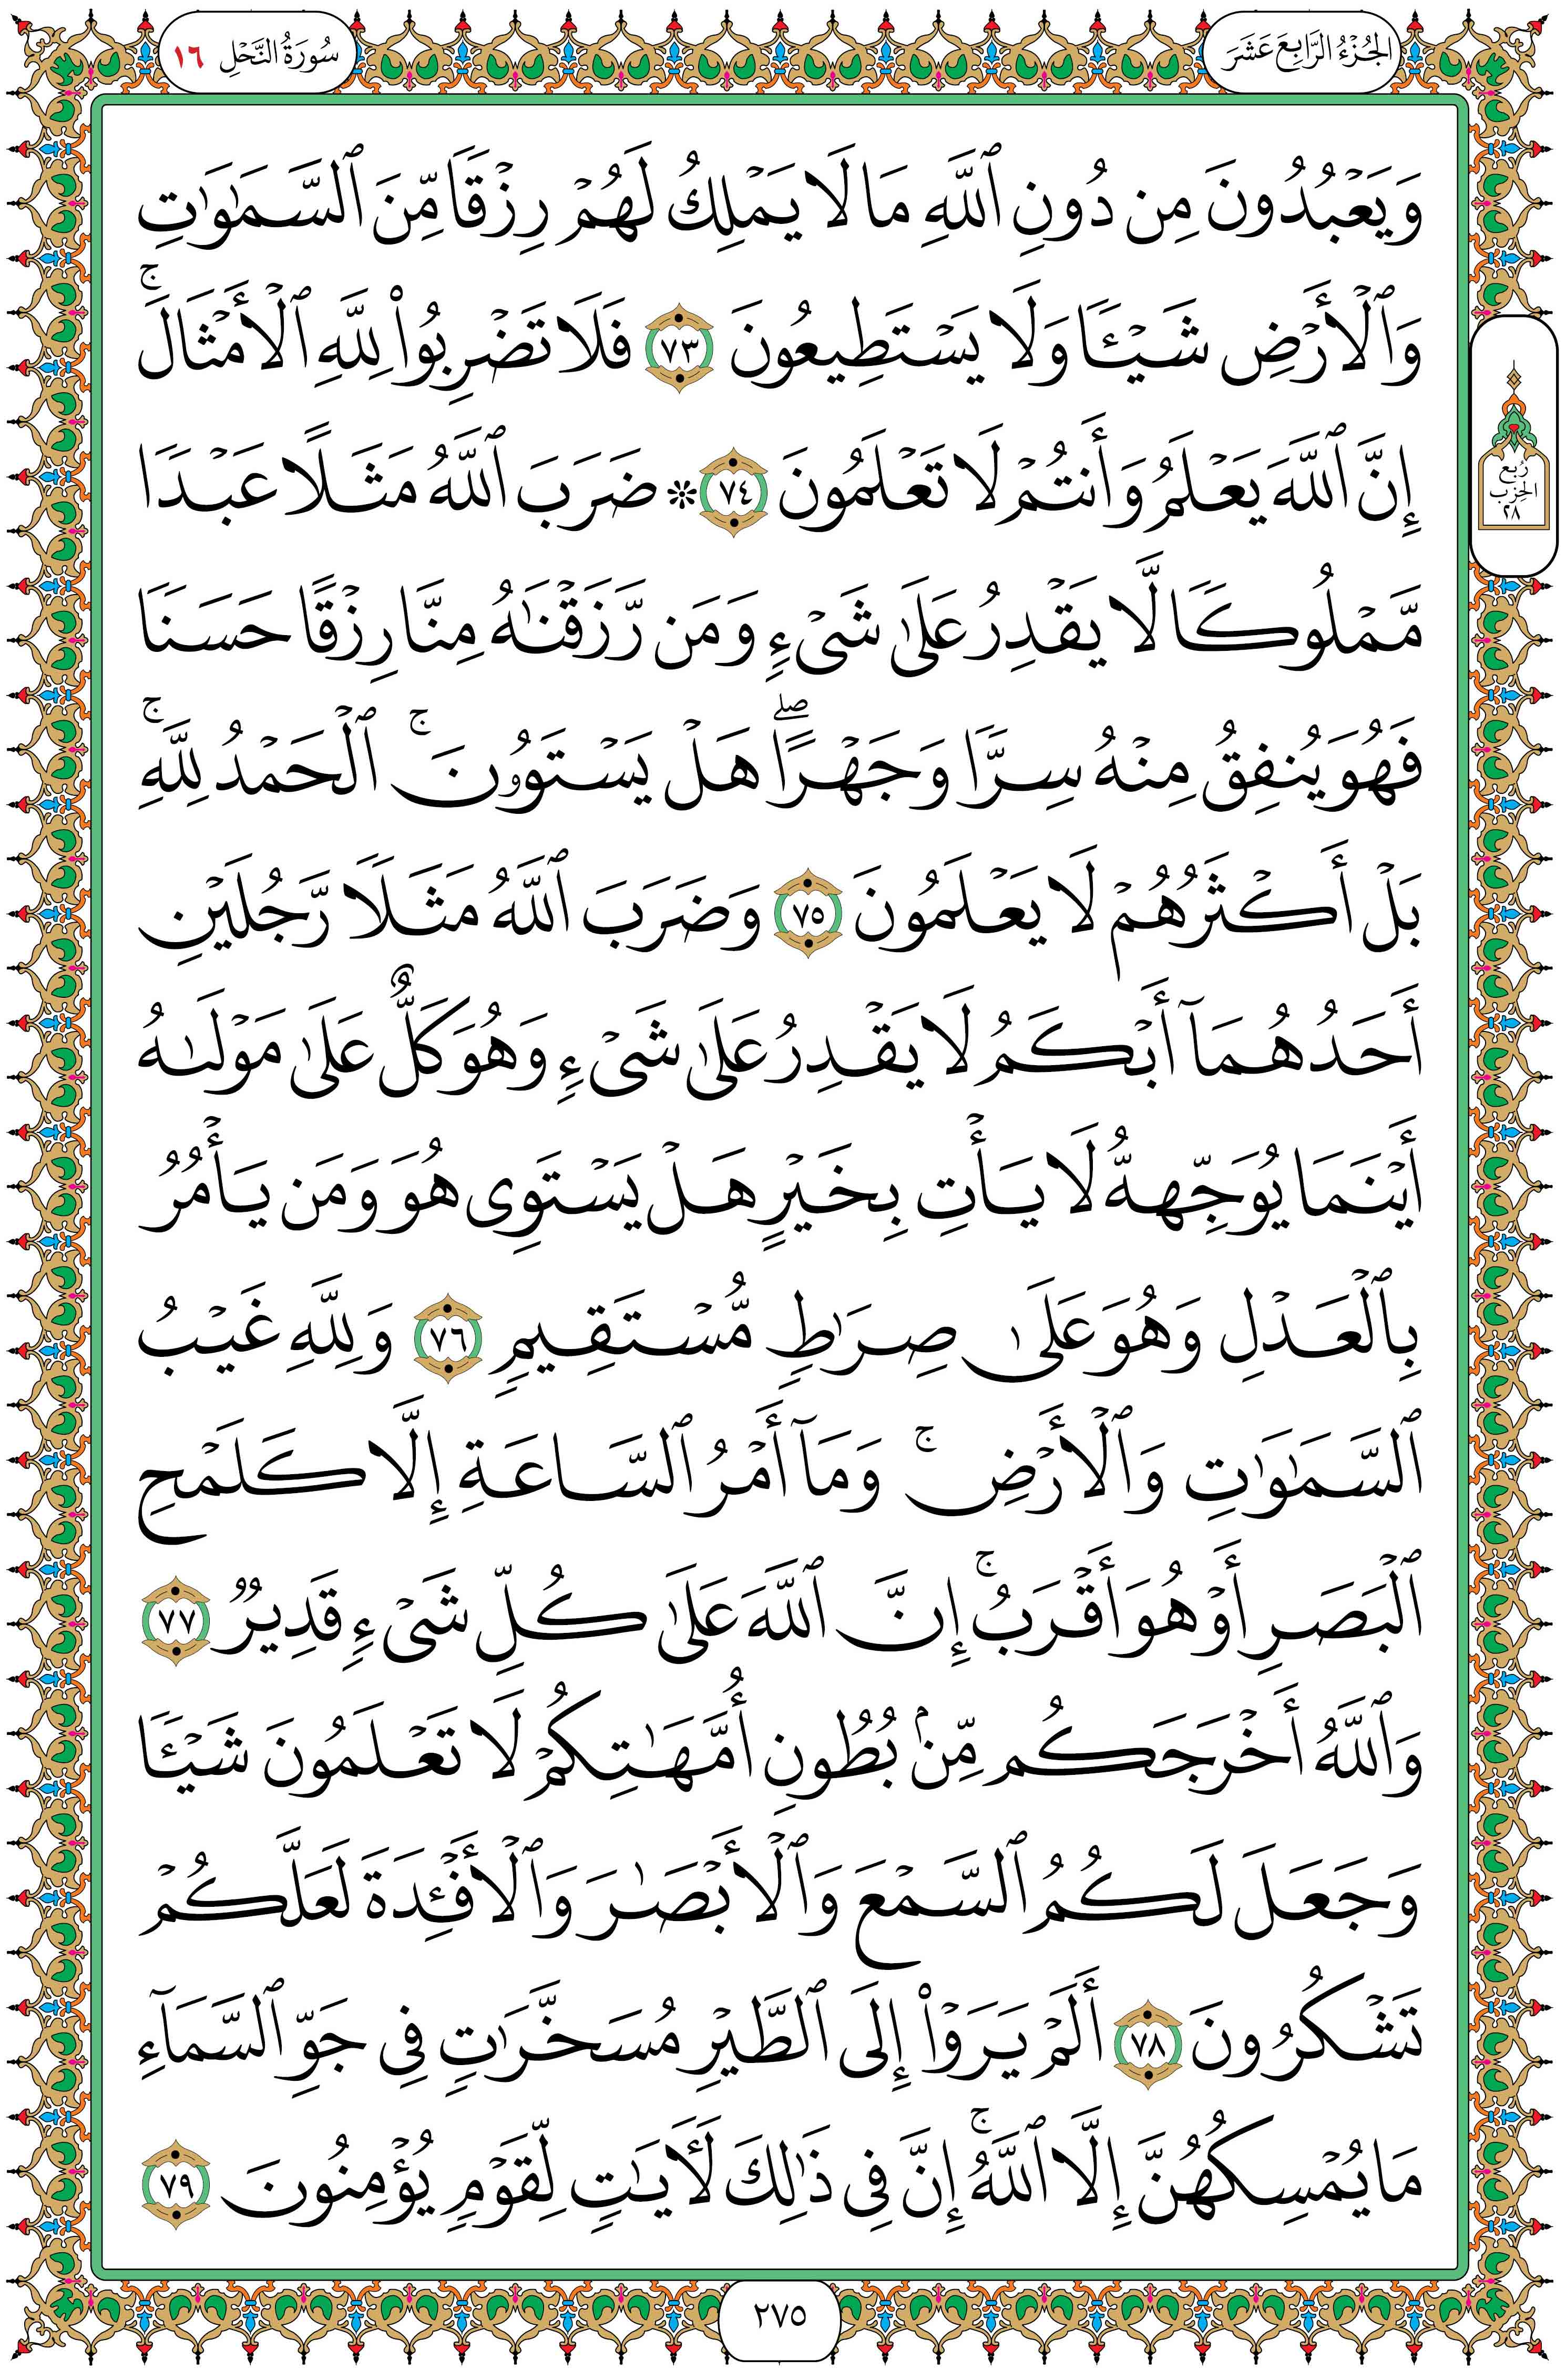 الجُزْءُ الرَّابِعَ عَشَرَ
سُورَةُ النَّحْلِ ١٦
وَيَعْبُدُونَ مِن دُونِ ٱللَّهِ مَا لَا يَمْلِكُ لَهُمْ رِزْقًا مِّنَ ٱلسَّمَٰوَٰتِ
وَٱلْأَرْضِ شَيْـًٔا وَلَا يَسْتَطِيعُونَ ٧٣ فَلَا تَضْرِبُوا۟ لِلَّهِ ٱلْأَمْثَالَ ۚ
إِنَّ ٱللَّهَ يَعْلَمُ وَأَنتُمْ لَا تَعْلَمُونَ ٧٤ ۞ ضَرَبَ ٱللَّهُ مَثَلًا عَبْدًا
مَّمْلُوكًا لَّا يَقْدِرُ عَلَىٰ شَىْءٍ وَمَن رَّزَقْنَٰهُ مِنَّا رِزْقًا حَسَنًا
فَهُوَ يُنفِقُ مِنْهُ سِرًّا وَجَهْرًا ۖ هَلْ يَسْتَوُۥنَ ۚ ٱلْحَمْدُ لِلَّهِ ۚ
بَلْ أَكْثَرُهُمْ لَا يَعْلَمُونَ ٧٥ وَضَرَبَ ٱللَّهُ مَثَلًا رَّجُلَيْنِ
أَحَدُهُمَآ أَبْكَمُ لَا يَقْدِرُ عَلَىٰ شَىْءٍ وَهُوَ كَلٌّ عَلَىٰ مَوْلَىٰهُ
أَيْنَمَا يُوَجِّههُّ لَا يَأْتِ بِخَيْرٍ هَلْ يَسْتَوِى هُوَ وَمَن يَأْمُرُ
بِٱلْعَدْلِ وَهُوَ عَلَىٰ صِرَٰطٍ مُّسْتَقِيمٍ ٧٦ وَلِلَّهِ غَيْبُ
ٱلسَّمَٰوَٰتِ وَٱلْأَرْضِ ۚ وَمَآ أَمْرُ ٱلسَّاعَةِ إِلَّا كَلَمْحِ
ٱلْبَصَرِ أَوْ هُوَ أَقْرَبُ ۚ إِنَّ ٱللَّهَ عَلَىٰ كُلِّ شَىْءٍ قَدِيرٌ ٧٧
وَٱللَّهُ أَخْرَجَكُم مِّنۢ بُطُونِ أُمَّهَٰتِكُمْ لَا تَعْلَمُونَ شَيْـًٔا
وَجَعَلَ لَكُمُ ٱلسَّمْعَ وَٱلْأَبْصَٰرَ وَٱلْأَفْـِٔدَةَ لَعَلَّكُمْ
تَشْكُرُونَ ٧٨ أَلَمْ يَرَوْا۟ إِلَى ٱلطَّيْرِ مُسَخَّرَٰتٍ فِى جَوِّ ٱلسَّمَآءِ
مَا يُمْسِكُهُنَّ إِلَّا ٱللَّهُ ۚ إِنَّ فِى ذَٰلِكَ لَـَٔايَٰتٍ لِّقَوْمٍ يُؤْمِنُونَ ٧٩
رُبع
الحِزْب
٢٨
٢٧٥